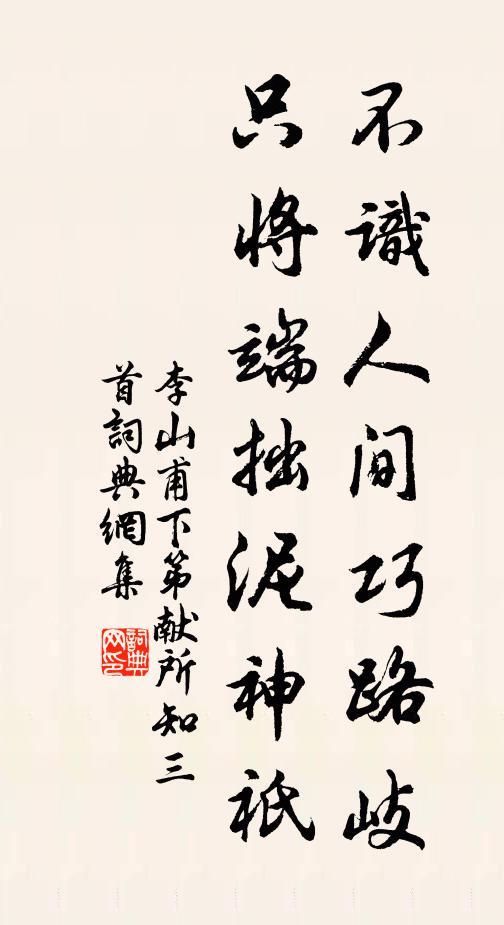 不識人间巧路岐
只將端拙泥神祇
李山甫下第献所知三
首詞典網集
詞典网印